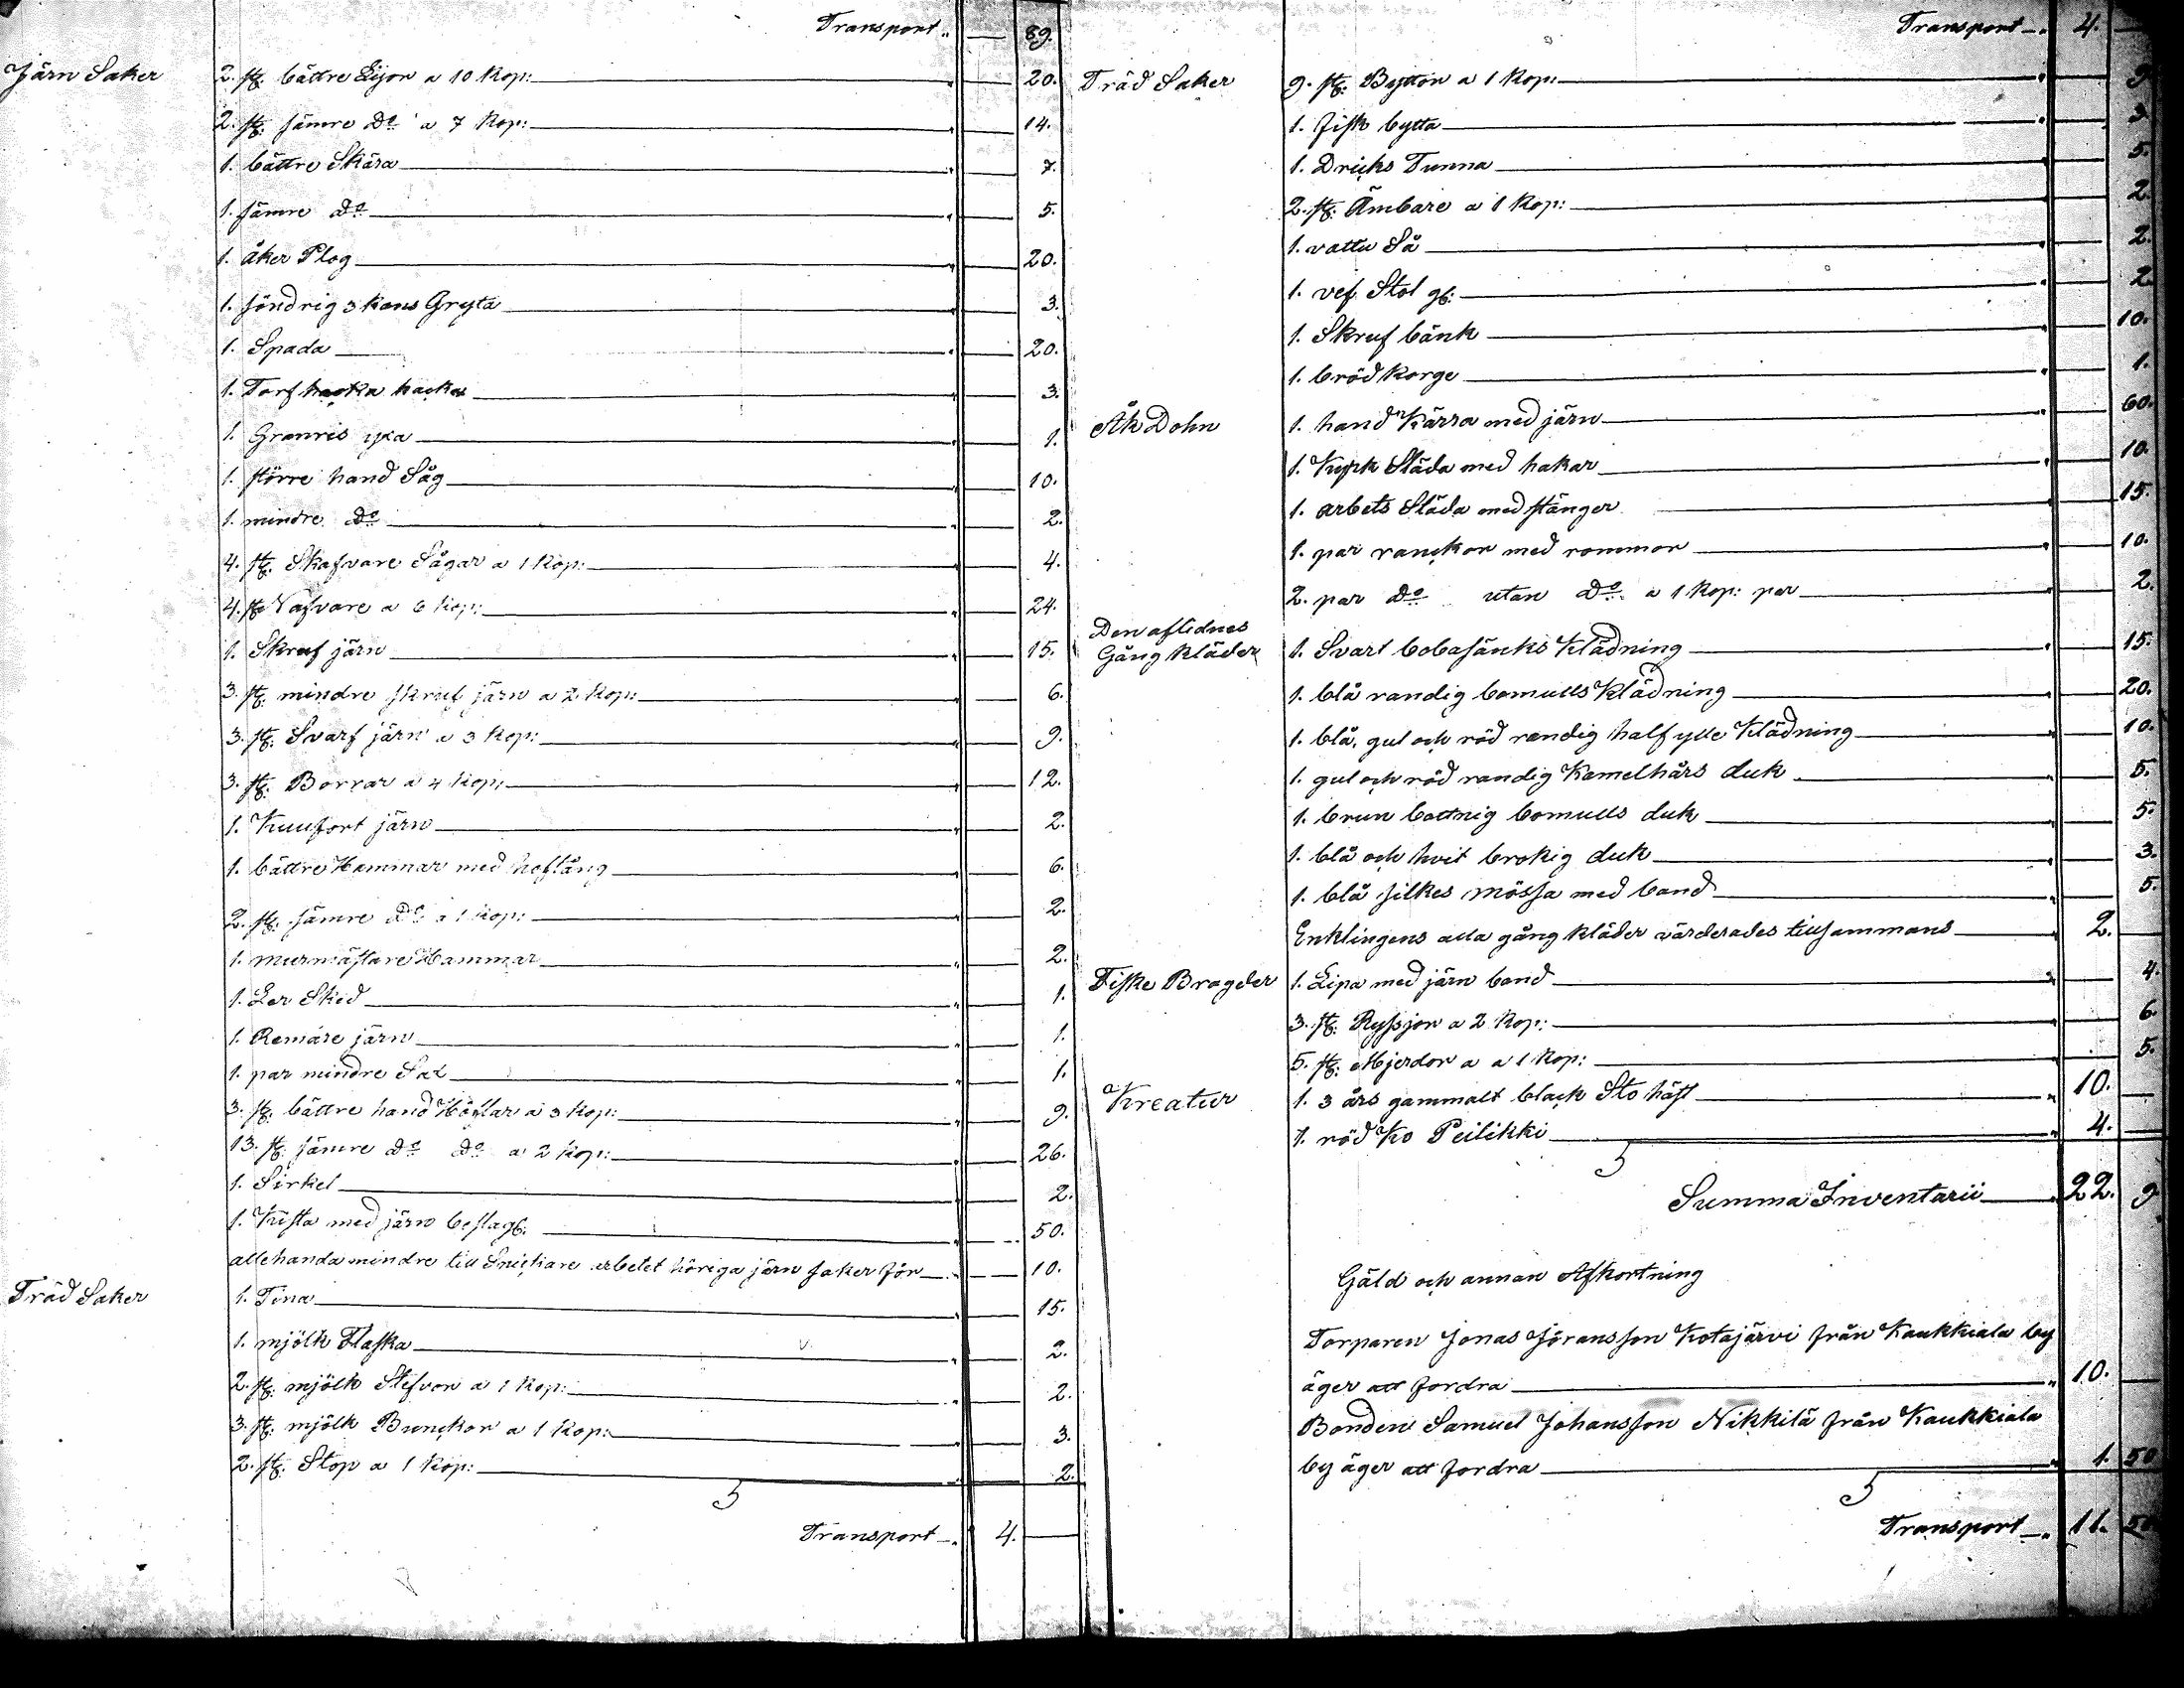 Transport „ — 89.
Järn Saker 2. st: bättre Lijor a 10 Kop: „ — 20.
2. st: sämre Do a 7 Kop: „ — 14.
1. bättre Skära „ — 7.
1. sämre Do „ — 5.
1. åker Plog „ — 20.
1. söndrig 3 kans Gryta „ — 3.
1. Spada „ — 20.
1. Torf hacka „ — 3.
1. Granris yxa „ — 1.
1. större hand Såg „ — 10.
1. mindre Do „ — 2.
4. st: Skafvare Sågar a 1 Kop: „ — 4.
4. st Nafvare a 6 Kop: „ — 24.
1. Skruf järn „ — 15.
3. st: mindre skruf järn a 2 Kop: „ — 6.
3. st: Svarf järn a 3 Kop: „ — 9.
3. st: Borrar a 4 Kop: „ — 12.
1. järn „ — 2.
1. bättre Hammar med hoftång „ — 6.
2. st: sämre Do a 1 Kop: „ — 2.
1. murmästare Hammar „ — 2.
1. Ler Sked „ — 1.
1. Remare järn „ — 1.
1. par mindre Sax „ — 1.
3. st: bättre hand Höflar a 3 Kop: „ — 9.
13. st: sämre Do Do a 2 Kop: „ — 26.
1. Sirkel „ — 2.
1. Kista med järn beslag „ — 50.
allehanda mindre till Snickare arbetet höriga järn saker för „ — 10.
Träd Saker 1. Tina „ — 15.
1. mjölk Flaska „ — 2.
2. st: mjölk Stefvor a 1 Kop: „ — 2.
3. st: mjölk Bunckor a 1 Kop: „ — 3.
2. st: Stop a 1 Kop: „ — 2.
Transport „ 4. —
Transport „ 4. —
Träd Saker 9. st: Byttor a 1 Kop: „ — 9
1. fisk bytta „ — 3
1. Dricks Tunna „ — 5.
2. st: Ämbare a 1 Kop: „ — 2.
1. vattu Så „ — 2.
1. vef Stol „ — 2.
1. Skruf bänk „ — 10.
1. bröd korge „ — 1.
Åk Dohn 1. hand Kärra med järn „ — 60.
1. Kyrk Släda med hakar „ — 10.
1. arbets Släda med stänger „ — 15.
1. par ranckor med rommor „ — 10.
2. par Do utan Do a 1 Kop: par „ — 2.
Den aflidnes
Gång kläder 1. Svart bobasänks Klädning „ — 15.
1. blå randig bomulls Klädning „ — 20.
1. blå, gul och röd randig half ylle Klädning „ — 10.
1. gul och röd randig Kamelhårs duk „ — 5.
1. brun bottnig bomulls duk „ — 5.
1. blå och hvit brokig duk „ — 3.
1. blå silkes mössa med band „ — 5.
Enklingens alla gång kläder värderades tillsammans „ 2. —
Fiske Bragder 1. Lipa med järn band „ — 4.
3. st: Ryssjor a 2 Kop: „ — 6.
5. st: Mjerdor a a 1 Kop: „ — 5.
Kreatur 1. 3 års gammalt black Sto häst „ 10. —
1. röd Ko Peilikki „ 4. —
Summa Inventarii „ 22. 9
Gäld och annan Afkortning
Torparen Jonas Jöransson Kotajärvi från Kaukkiala by
äger att fordra „ 10. —
Bonden Samuel Johansson Nikkilä från Kaukkiala
by äger att fordra „ 1. 50
Transport „ 11. 50